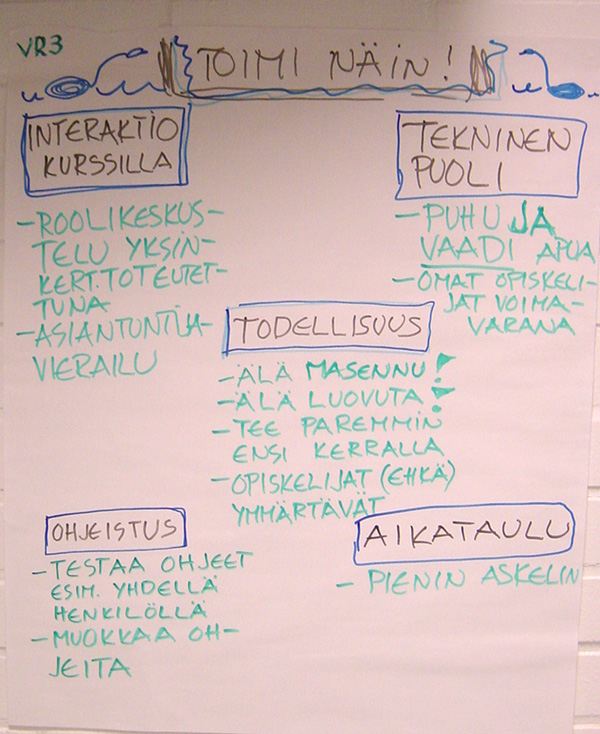 VR3
TOIMI NÄIN!
INTERAKTIO
KURSSILLA
-ROOLIKESKUS-
TELU YKSIN-
KERT.TOTEUTET-
TUNA
-ASIANTUNTIJA-
VIERAILU
TEKNINEN
PUOLI
-PUHU JA
VAADI APUA
-OMAT OPISKELI-
JAT VOIMA-
VARANA
TODELLISUUS
-ÄLÄ MASENNU!
-ÄLÄ LUOVUTA!
-TEE PAREMMIN
ENSI KERRALLA
-OPISKELIJAT (EHKÄ)
YMMÄRTÄVÄT
OHJEISTUS
-TESTAA OHJEET
ESIM. YHDELLÄ
HENKILÖLLÄ
-MUOKKAA OH-
JEITA
AIKATAULU
- PIENIN ASKELIN